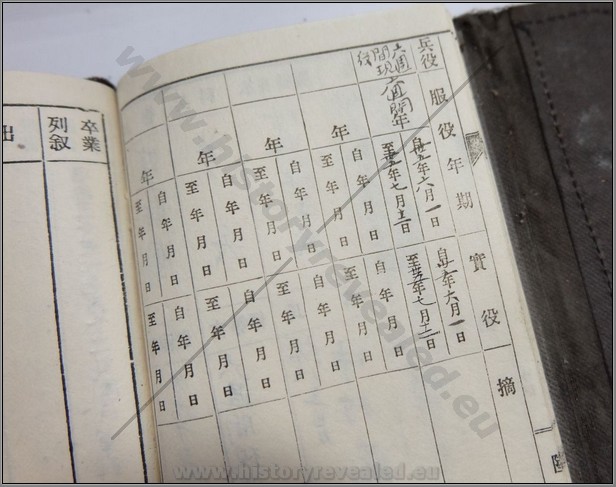 兵役
服役年期
實役
摘
六週
間現
役
六週間年
自 年六月一日
至 年七月 日
自 年六月一日
至 年七月 日
年
自年月日
至年月日
自年月日
至年月日
年
自年月日
至年月日
自年月日
至年月日
年
自年月日
至年月日
自年月日
至年月日
年
自年月日
至年月日
自年月日
至年月日
卒業
列敘
出
www.historyrevealed.eu
www.historyrevealed.eu